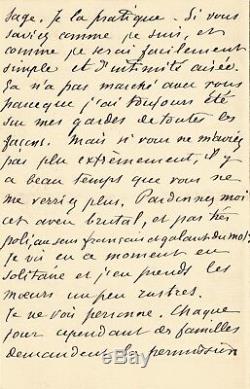 sage. Je la pratique. Si vous
saviez comme je suis, et
comme je serai facilement
simple et d'intimité aisée.
Ça n'a pas marché avec vous
parceque j'ai toujours été
sur mes gardes de toutes les
façons. Mais si vous ne m'aviez
pas plu extrêmement, il y
a beau temps que vous ne
me verriez plus. Pardonnez moi
cet aveu brutal, et pas très
poli, au sens français et galant du mot;
Je vis en ce moment en
solitaire et j'en prends les
mœurs un peu rustres.
Je ne vois personne. Chaque
jour cependant des familles
demandent la permission